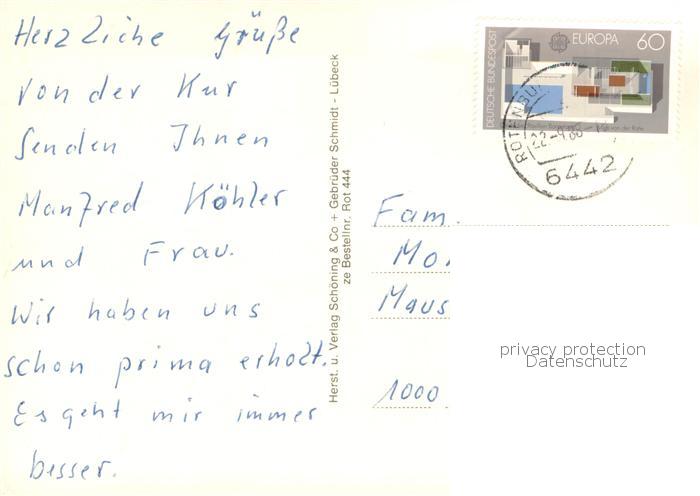 Herzliche Grüße
von der Kur
Senden Ihnen
Manfred Köhler
und Frau.
Wir haben uns
schon prima erholt.
Es geht mir immer
besser.
Herst. u. Verlag Schöning & Co + Gebrüder Schmidt - Lübeck
ze Bestellnr. Rot 444
DEUTSCHE BUNDESPOST
EUROPA 60
6442
Fam.
Mo.
Maus
1000
privacy protection
Datenschutz